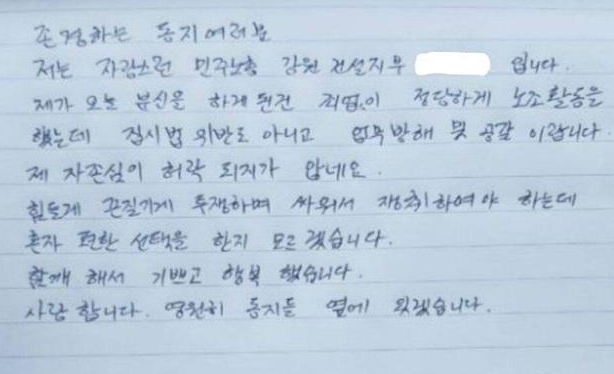 존경하는 동지여러분
저는 자랑스런 민주노총 강원 건설지부 입니다.
제가 오늘 분신을 하게 된건 죄없이 정당하게 노조활동을
했는데 집시법 위반도 아니고 업무방해 및 공갈 이랍니다
제 자존심이 허락 되지가 않네요.
힘들게 끈질기게 투쟁하며 싸워서 쟁취하여야 하는데
혼자 편한 선택을 한지 모르겠습니다.
함께 해서 기쁘고 행복 했습니다.
사랑 합니다. 영원히 동지들 옆에 있겠습니다.